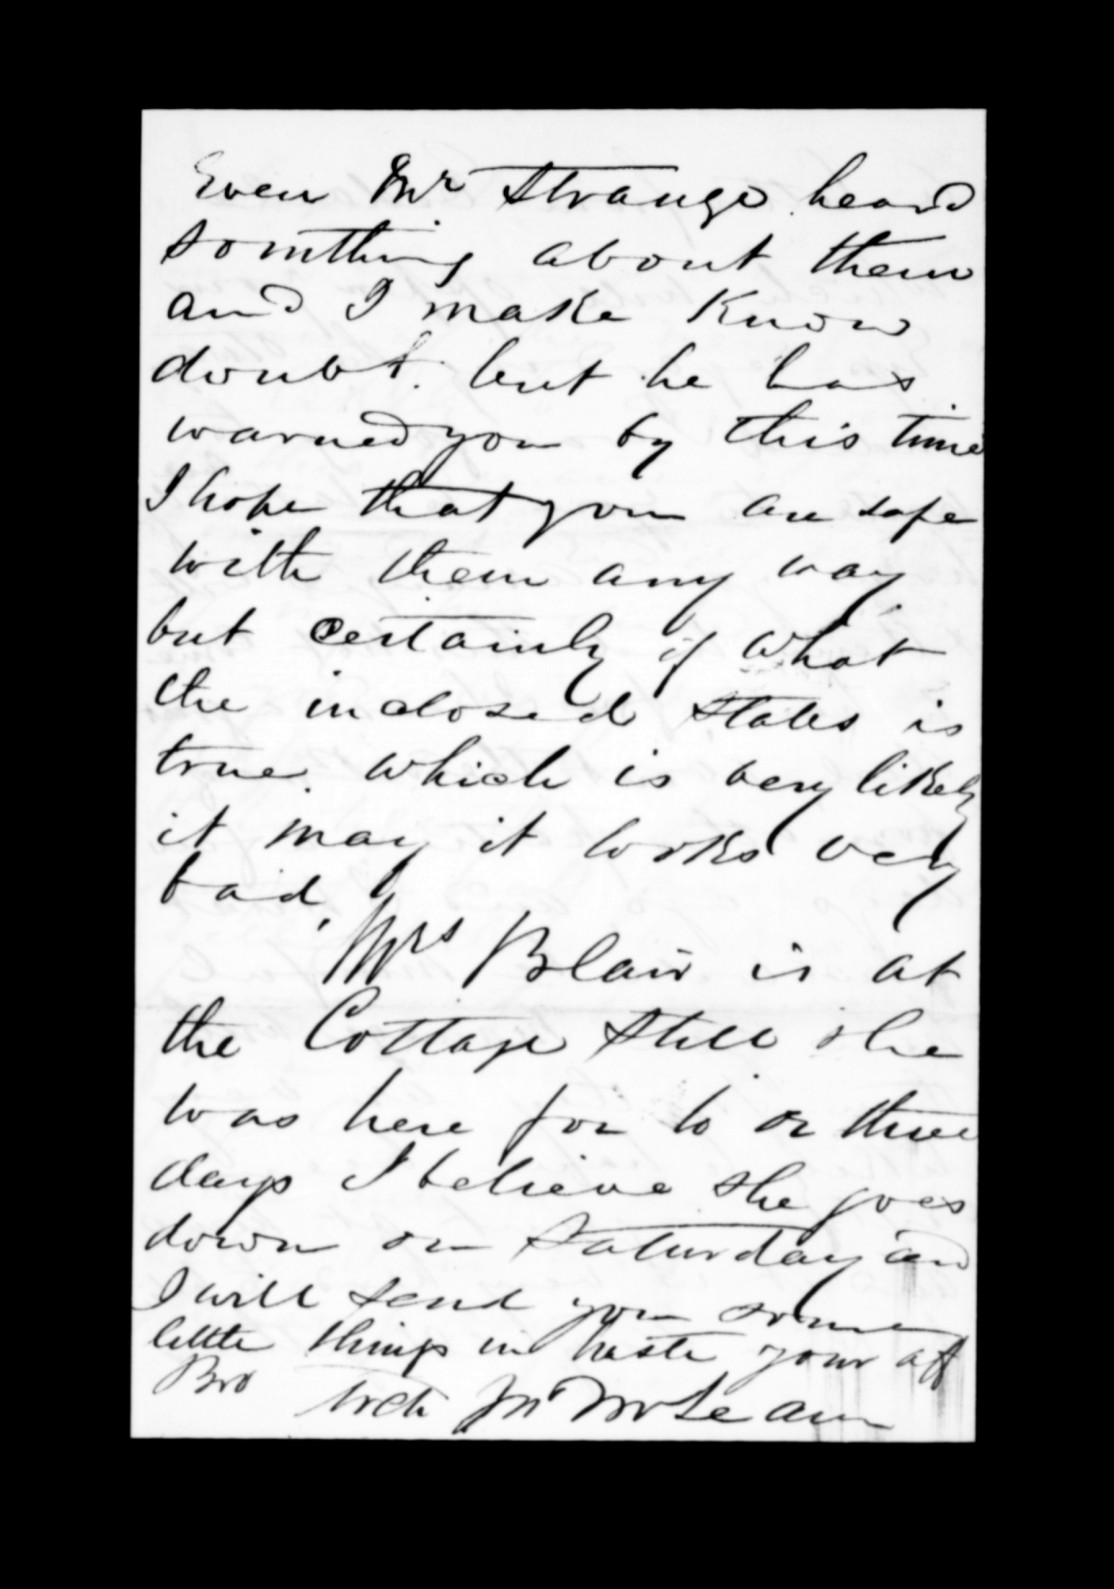 Even Mr Strange heard
somthing about them
and I make know
doubt. but he has
warned you by this time
I hope that you are safe
with them any way
but certainly if what
the inclosed states is
true. which is very likely
it may it looks very
bad,
Mrs Blair is at
the Cottage still she
was here for to or three
days I believe she goes
down on Saturday and
I will send you some
little things in haste your aff
Bro Arch Jno McLean